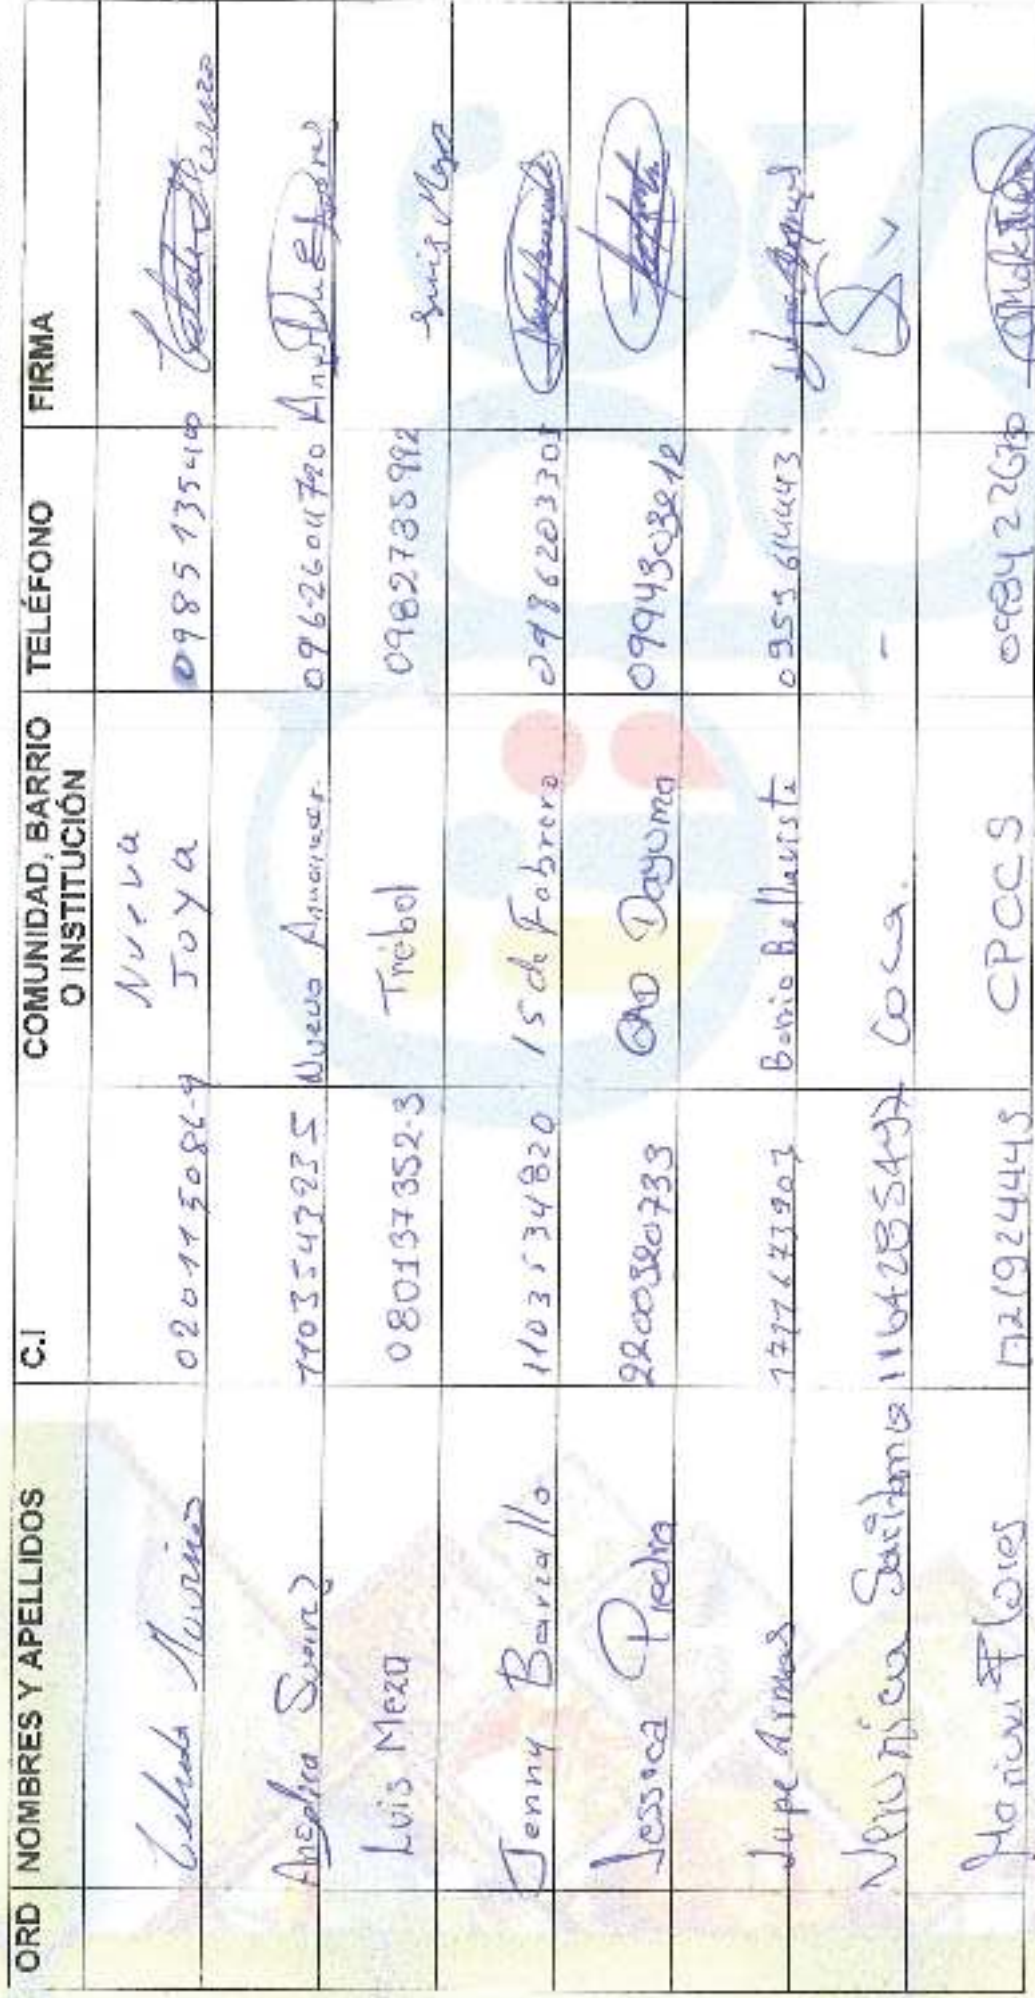 ORD NOMBRES Y APELLIDOS C.I COMUNIDAD, BARRIO O INSTITUCIÓN TELÉFONO FIRMA
020115086-9 Nueva Joya 0985135400
Suarez 1103547235 Nuevo Amanecer 0962604720
Luis Meza 080137352-3 Trebol 0982735992 Luis Meza
Jenny Barzallo 1103534820 15 de Febrero 0986203305
Jessica Piedra 2200320733 GAD Dayuma 0994303212
Lupe Armas 1717673907 Barrio Bellavista 0959614443
Veronica Santana 11642854-92 Coca. -
Flores 1721924445 CPCCS 0984227670